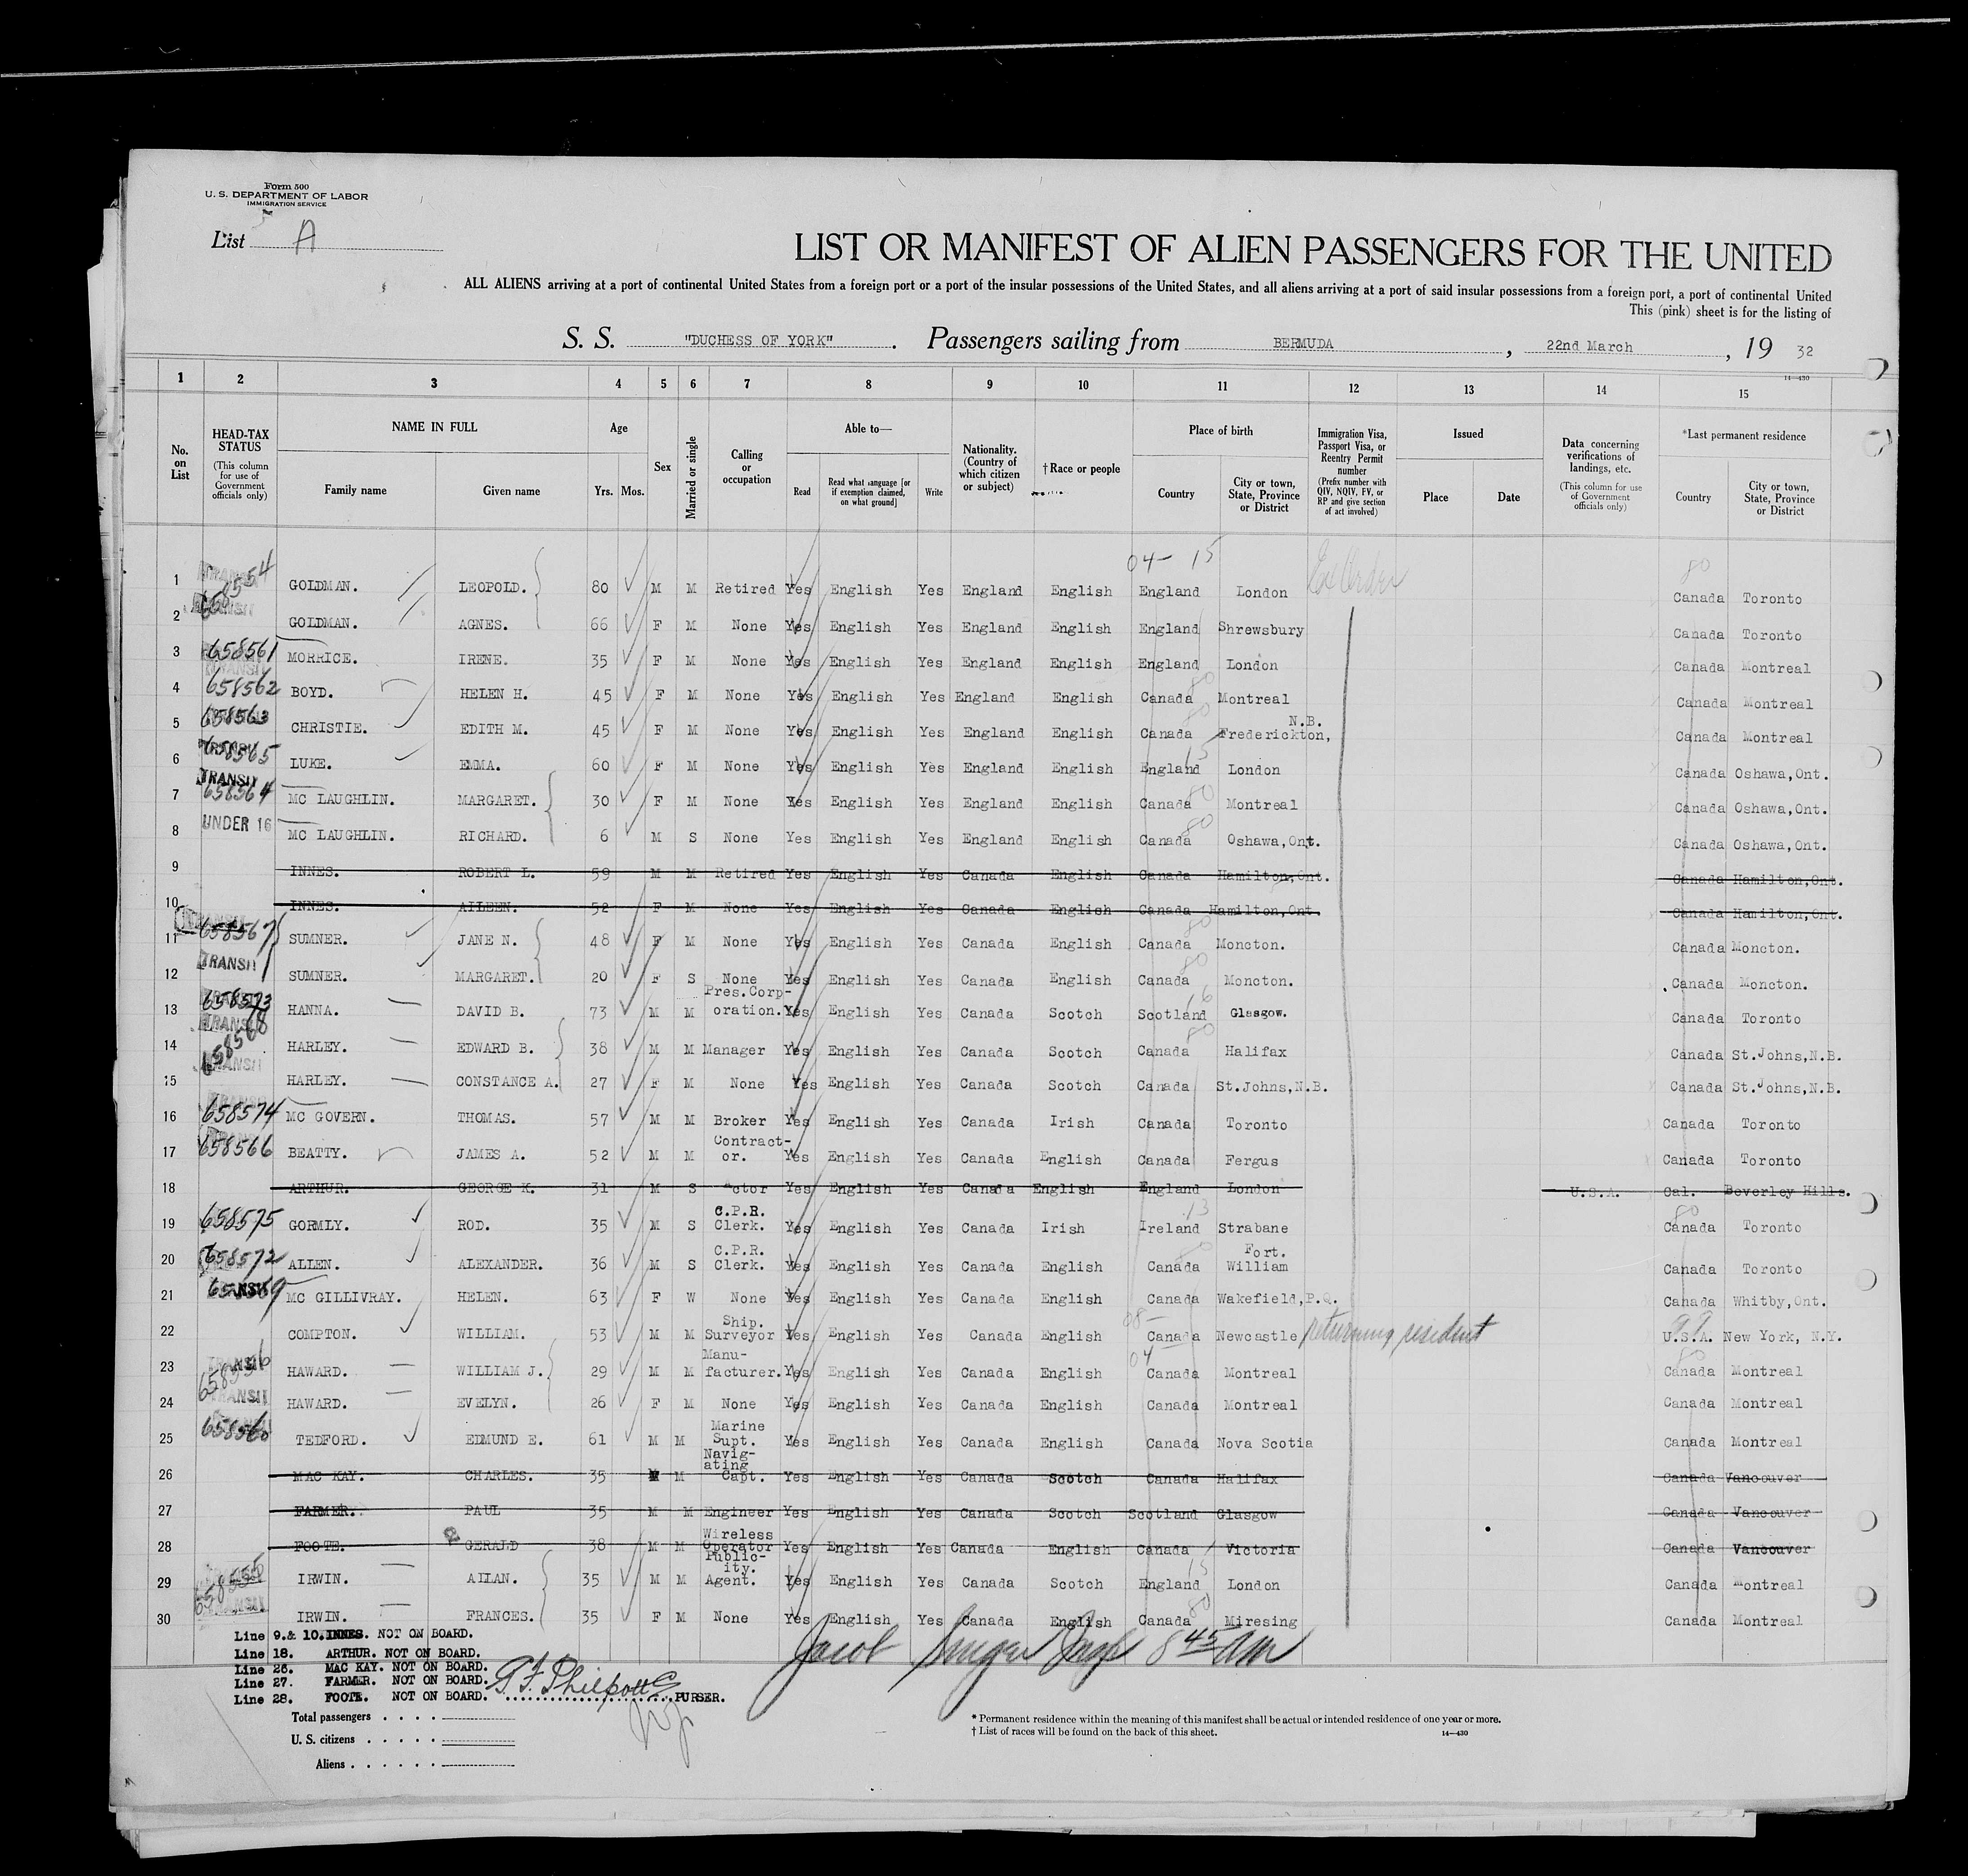 Form 500
U. S. DEPARTMENT OF LABOR
IMMIGRATION SERVICE
List A
LIST OR MANIFEST OF ALIEN PASSENGERS FOR THE UNITED
ALL ALIENS arriving at a port of continental United States from a foreign port or a port of the insular possessions of the United States, and all aliens arriving at a port of said insular possessions from a foreign port, a port of continental United
This (pink) sheet is for the listing of
S. S. "DUCHESS OF YORK". Passengers sailing from BERMUDA, 22nd March, 19 32
14-430
1 2 3 4 5 6 7 8 9 10 11 12 13 14 15
No. on List
HEAD-TAX STATUS (This column for use of Government officials only)
NAME IN FULL
Family name
Given name
Age
Yrs. Mos.
Sex
Married or single
Calling or occupation
Able to—
Read
Read what language [or if exemption claimed, on what ground]
Write
Nationality. (Country of which citizen or subject)
† Race or people
Place of birth
Country
City or town, State, Province or District
Immigration Visa, Passport Visa, or Reentry Permit number (Prefix number with QIV, NQIV, FV, or RP and give section of act involved)
Issued
Place
Date
Data concerning verifications of landings, etc. (This column for use of Government officials only)
*Last permanent residence
Country
City or town, State, Province or District
04- 15 80
1 GOLDMAN. LEOPOLD. 80 M M Retired Yes English Yes England English England London Canada Toronto
2 GOLDMAN. AGNES. 66 F M None Yes English Yes England English England Shrewsbury Canada Toronto
3 658561 MORRICE. IRENE. 35 F M None Yes English Yes England English England London Canada Montreal
4 658562 BOYD. HELEN H. 45 F M None Yes English Yes England English Canada Montreal Canada Montreal
5 658563 CHRISTIE. EDITH M. 45 F M None Yes English Yes England English Canada Frederickton, N.B. Canada Montreal
6 658565 LUKE. EMMA. 60 F M None Yes English Yes England English England London Canada Oshawa,Ont.
TRANSIT
7 658564 MC LAUGHLIN. MARGARET. 30 F M None Yes English Yes England English Canada Montreal Canada Oshawa,Ont.
8 UNDER 16 MC LAUGHLIN. RICHARD. 6 M S None Yes English Yes England English Canada Oshawa,Ont. Canada Oshawa,Ont.
9 INNES. ROBERT L. 59 M M Retired Yes English Yes Canada English Canada Hamilton,Ont. Canada Hamilton,Ont.
10 INNES. AILEEN. 52 F M None Yes English Yes Canada English Canada Hamilton,Ont. Canada Hamilton,Ont.
11 658567 SUMNER. JANE N. 48 F M None Yes English Yes Canada English Canada Moncton. Canada Moncton.
12 TRANSIT SUMNER. MARGARET. 20 F S None Yes English Yes Canada English Canada Moncton. Canada Moncton.
13 658573 HANNA. DAVID B. 73 M M Pres.Corp-oration. Yes English Yes Canada Scotch Scotland Glasgow. Canada Toronto
14 HARLEY. EDWARD B. 38 M M Manager Yes English Yes Canada Scotch Canada Halifax Canada St.Johns,N.B.
15 HARLEY. CONSTANCE A. 27 F M None Yes English Yes Canada Scotch Canada St.Johns,N.B. Canada St.Johns,N.B.
16 658574 MC GOVERN. THOMAS. 57 M M Broker Yes English Yes Canada Irish Canada Toronto Canada Toronto
17 658566 BEATTY. JAMES A. 52 M M Contract-or. Yes English Yes Canada English Canada Fergus Canada Toronto
18 ARTHUR. GEORGE K. 31 M S Actor Yes English Yes Canada English England London U.S.A. Cal. Beverley Hills.
19 658575 GORMLY. ROD. 35 M S C.P.R. Clerk. Yes English Yes Canada Irish Ireland Strabane Canada Toronto
20 658572 ALLEN. ALEXANDER. 36 M S C.P.R. Clerk. Yes English Yes Canada English Canada Fort. William Canada Toronto
21 658569 MC GILLIVRAY. HELEN. 63 F W None Yes English Yes Canada English Canada Wakefield,P.Q. Canada Whitby,Ont.
22 COMPTON. WILLIAM. 53 M M Ship. Surveyor Yes English Yes Canada English Canada Newcastle returning resident U.S.A. New York, N.Y.
23 HAWARD. WILLIAM J. 29 M M Manu-facturer. Yes English Yes Canada English Canada Montreal Canada Montreal
24 HAWARD. EVELYN. 26 F M None Yes English Yes Canada English Canada Montreal Canada Montreal
25 658560 TEDFORD. EDMUND E. 61 M M Marine Supt. Yes English Yes Canada English Canada Nova Scotia Canada Montreal
26 MAC KAY. CHARLES. 35 M M Navig-ating Capt. Yes English Yes Canada Scotch Canada Halifax Canada Vancouver
27 FARMER. PAUL 35 M M Engineer Yes English Yes Canada Scotch Scotland Glasgow Canada Vancouver
28 FOOTE. GERALD 38 M M Wireless Operator Yes English Yes Canada English Canada Victoria Canada Vancouver
29 IRWIN. ALLAN. 35 M M Public-ity. Agent. Yes English Yes Canada Scotch England London Canada Montreal
30 IRWIN. FRANCES. 35 F M None Yes English Yes Canada English Canada Miresing Canada Montreal
Line 9.& 10.INNES. NOT ON BOARD.
Line 18. ARTHUR. NOT ON BOARD.
Line 26. MAC KAY. NOT ON BOARD.
Line 27. FARMER. NOT ON BOARD.
Line 28. FOOTE. NOT ON BOARD. G. F. Philpotts PURSER.
Jacob 8 45 AM
Total passengers
U. S. citizens
Aliens
* Permanent residence within the meaning of this manifest shall be actual or intended residence of one year or more.
† List of races will be found on the back of this sheet.
14-430